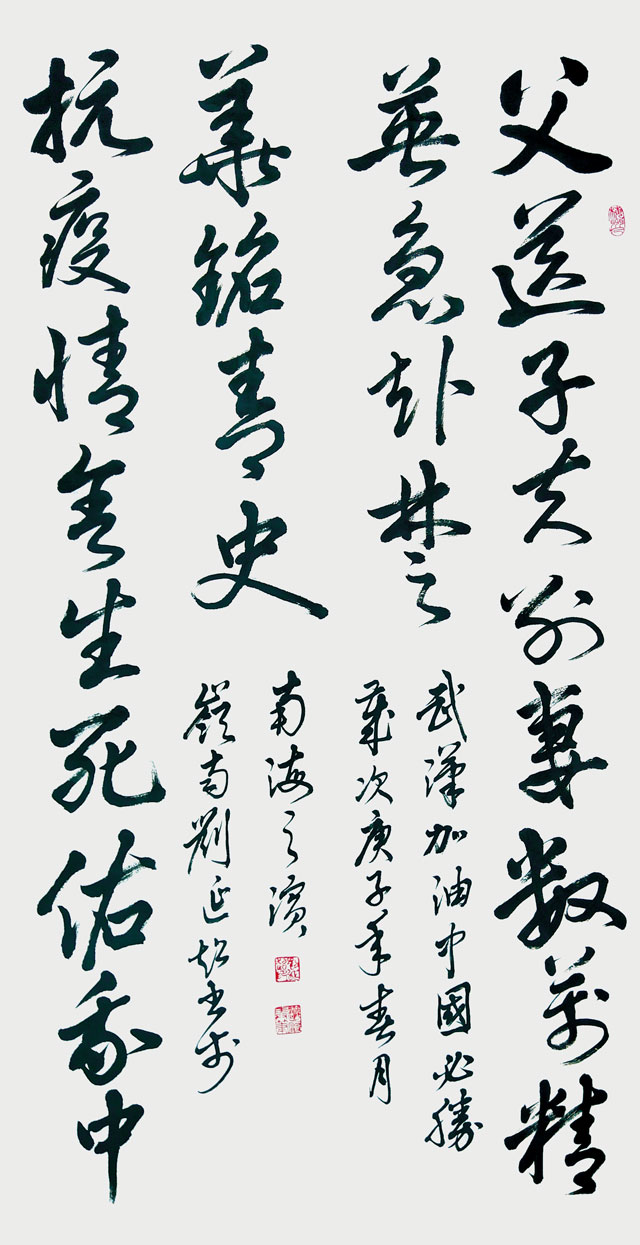 父送子夫别妻数萬精
英急赴楚
武漢加油中國必勝
歲次庚子年春月
抗疫情舍生死佑我中
華銘青史
嶺南劉延超书於
南海之濱